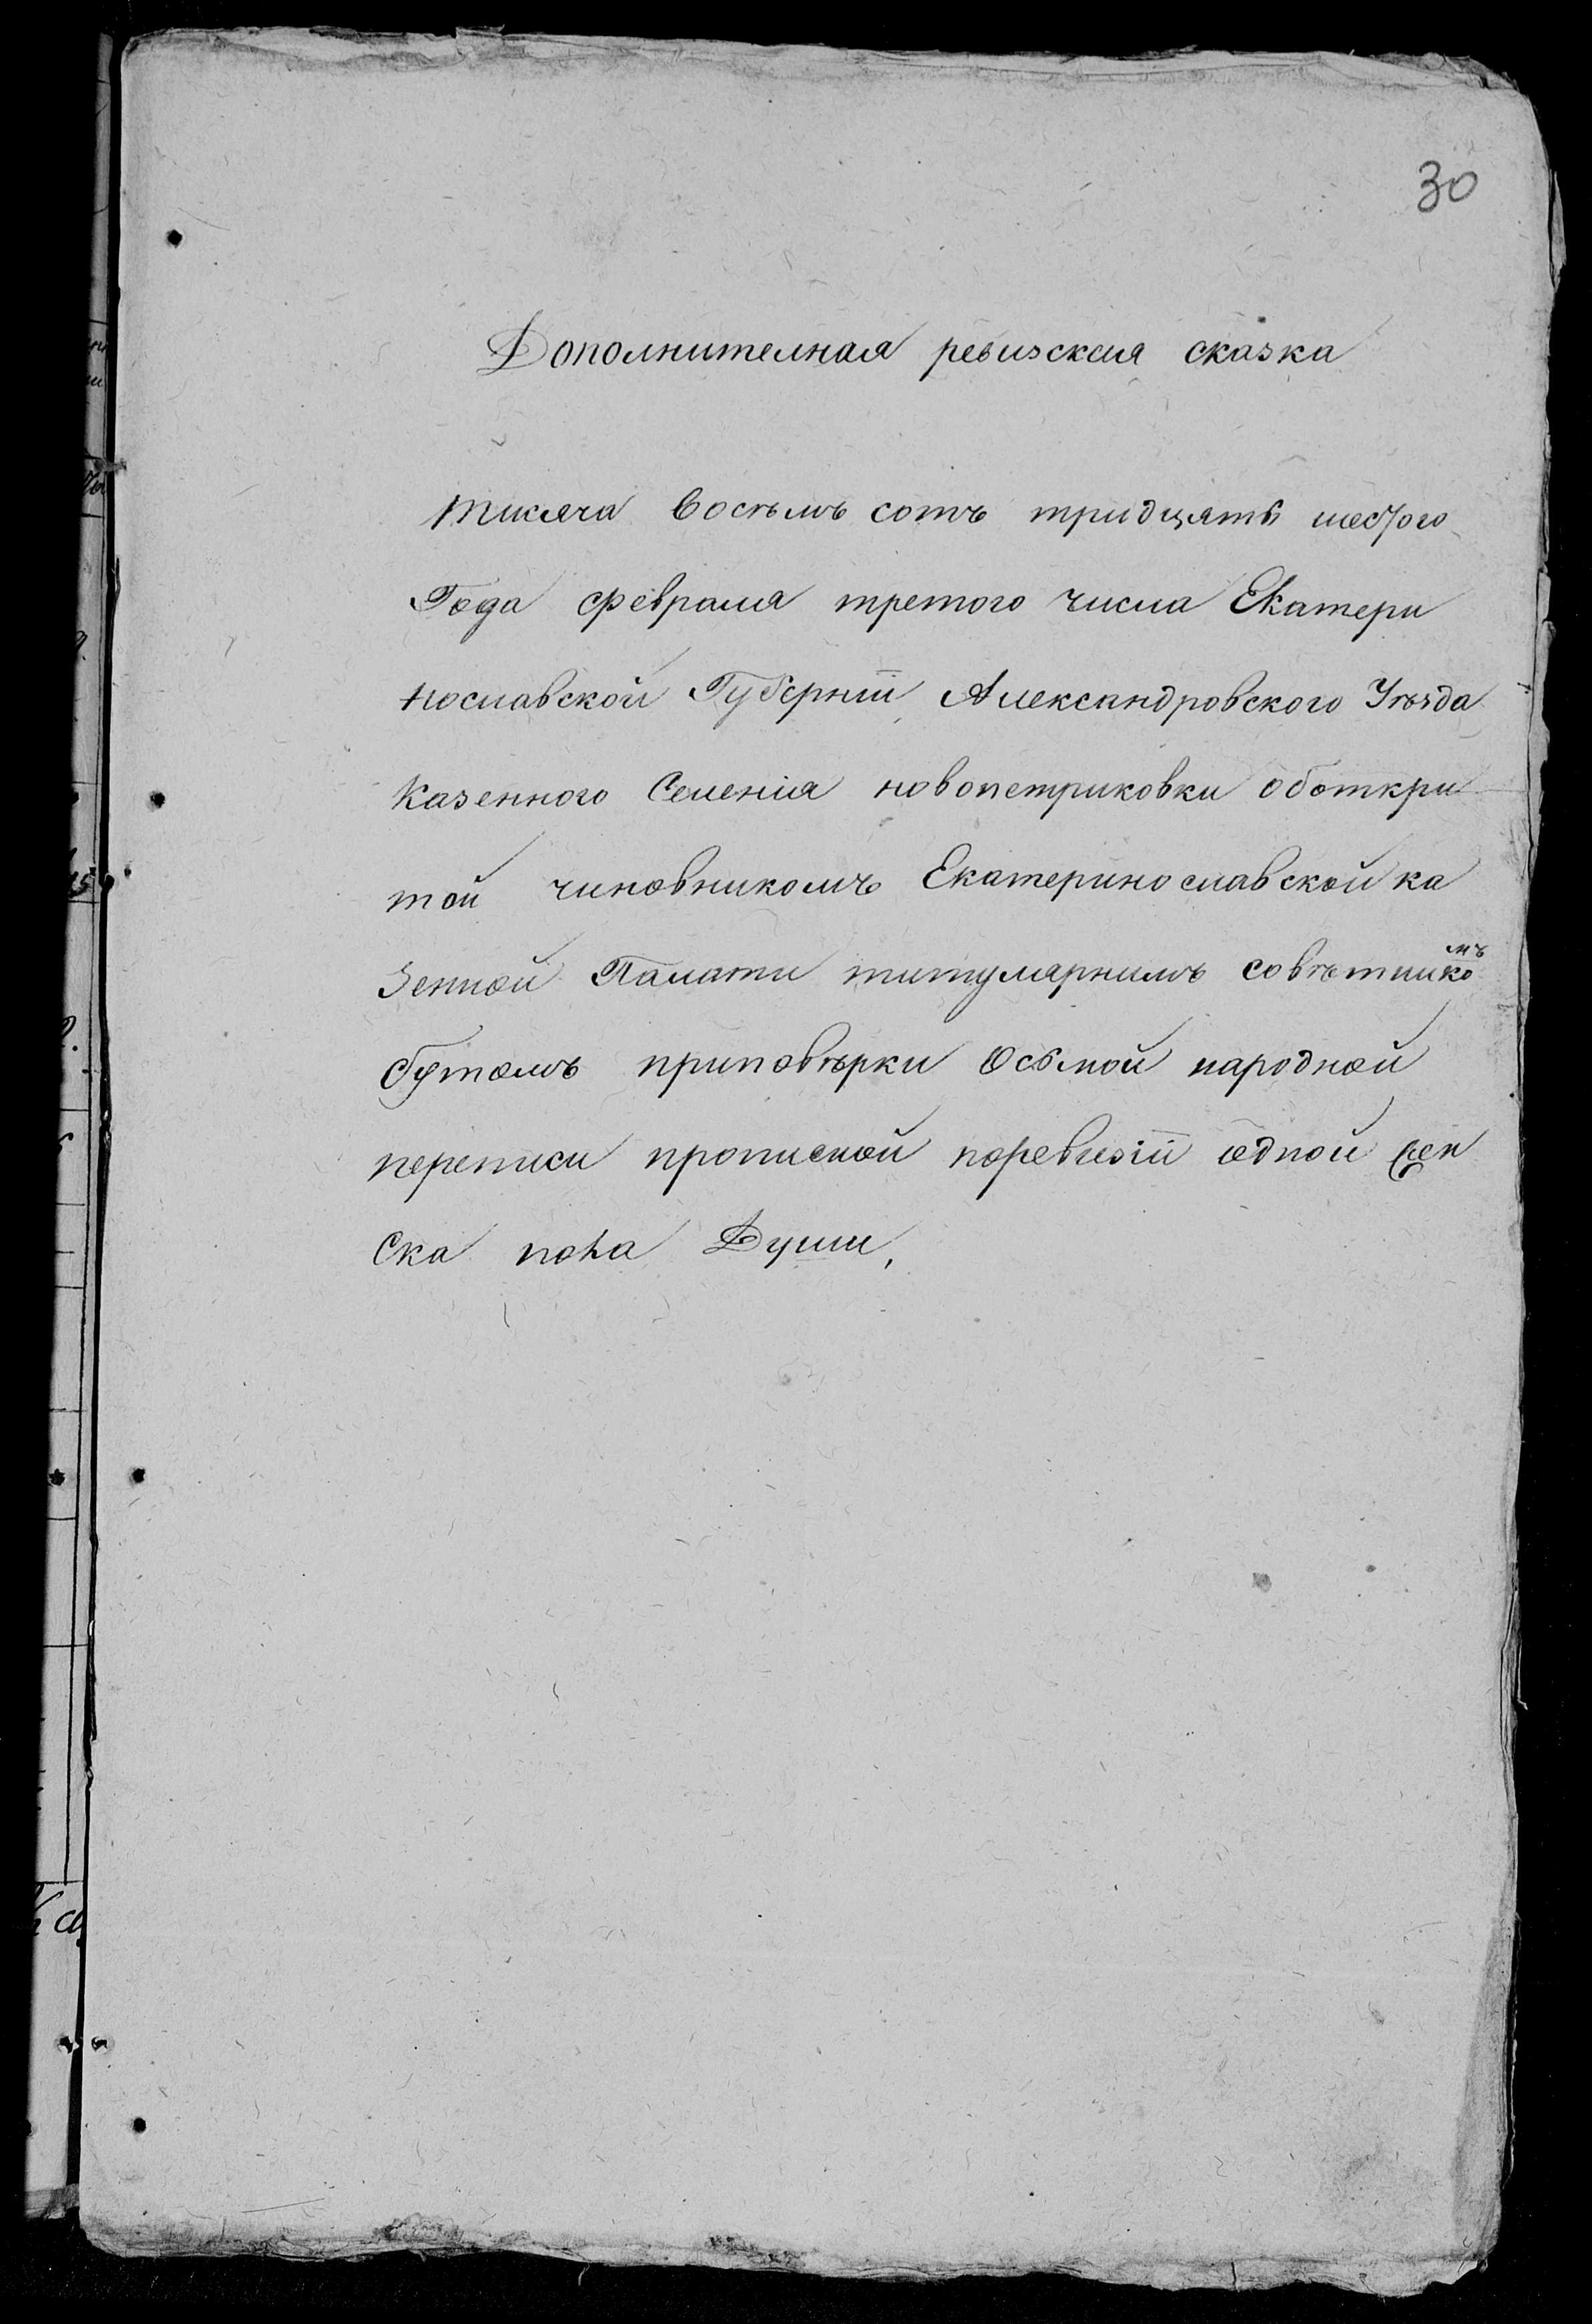 30
Дополнителная ревизская сказка
тисяча восъмъ сотъ тридцять шестого
Года февраля третого числа Екатери
нославской Губернїї Александровского Уѣзда
Казенного Селенія новопетриковки оботкри
той чиновникомъ Екатеринославской ка
зенной Палати титулярнимъ совѣтникомъ
Бутомъ приповѣрки Осьмой народной
переписи прописной поревизїї одной жен
ска пола Души,